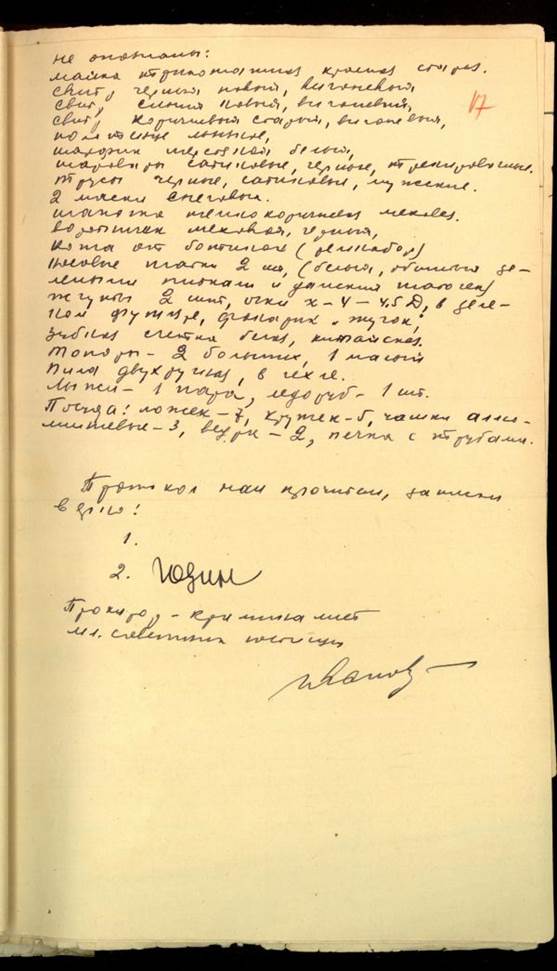 не опознаны:
17
майка трикотажная красная старая.
свитр черный новый, вигоневый
свитр синий новый, вигоневый,
свитр коричневый старый, вигоневый,
полотенце
шарфик шерстяной белый,
шаровары сатиновые, черные, тренировочные.
трусы черные, сатиновые, мужские.
2 маски снеговые.
шапка темнокоричневая меховая.
воротник меховой, черный,
кожа от ботинок
Носовые платки 2 шт, (белый, обшитый зе-
леными нитками и дамский
Жгуты 2 шт, очки х-4-4.5 Д, в зеле-
ном футляре, фонарик "жучок",
зубная щетка белая, китайская.
Топоры - 2 больших, 1 малый
Пила двухручная, в чехле.
Лыжи - 1 пара, ледоруб - 1 шт.
Посуда: ложек - 7, кружек - 5, чашки алю-
миниевые - 3, ведра - 2, печка с трубами.
Протокол нами прочитан, записан
верно:
1.
2. Юдин
Прокурор - криминалист
мл. советник юстиции
Иванов